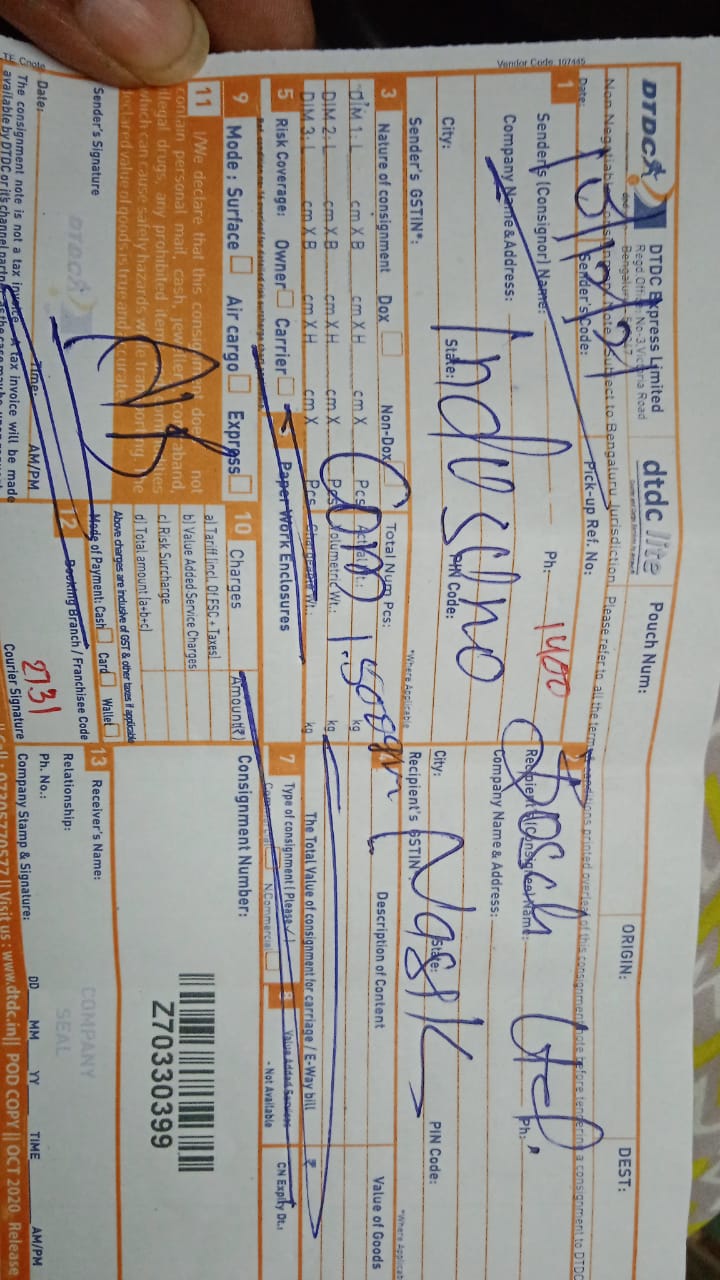 Vendor Code: 107445
DTDC
DTDC Express Limited
Regd. Office No-3, Victoria Road
Bengaluru
dtdc lite
Pouch Num:
ORIGIN:
DEST:
Non Negotiable Consignment Note / Subject to Bengaluru Jurisdiction. Please refer to all the terms & conditions printed overleaf of this consignment note before tendering a consignment to DTDC
Date:
Sender's Code:
Pick-up Ref. No:
1 Sender's (Consignor) Name:
Ph:
1400
Company Name & Address:
Indosono
City:
State:
PIN Code:
Sender's GSTIN*:
*Where Applicable
Recipient's (Consignee) Name:
Ph:
Bosch Ltd.
Company Name & Address:
Nasik
City:
State:
PIN Code:
Recipient's GSTIN
*Where Applicab
3 Nature of consignment Dox
Non-Dox
Total Num Pcs:
Description of Content
Value of Goods
DIM 1: L cm X B cm X H cm X Pcs Actual Wt.: kg
DIM 2: L cm X B cm X H cm X Pcs Volumetric Wt.: kg
DIM 3: L cm X B cm X H cm X Pcs Chargeable Wt.: kg
1.500gm
The Total Value of consignment for carriage / E-Way bill ₹
5 Risk Coverage: Owner Carrier
Paper Work Enclosures
7 Type of consignment (Please √)
Commercial N.Commercial
8 Value Added Services
- Not Available
CN Expity Dt.:
9 Mode : Surface Air cargo Express
10 Charges
Amount(₹)
a) Tariff (incl. Of FSC + Taxes)
b) Value Added Service Charges
c) Risk Surcharge
d) Total amount (a+b+c)
Above charges are inclusive of GST & other taxes if applicable
Mode of Payment: Cash Card Wallet
Consignment Number:
Z70330399
11 I/We declare that this consignment does not
contain personal mail, cash, jewellery, contraband,
illegal drugs, any prohibited items and commodities
which can cause safety hazards while transporting. The
declared value of goods is true and accurate
Sender's Signature
DTDC
Date:
Time:
AM/PM
12 Booking Branch / Franchisee Code
2731
Courier Signature
13 Receiver's Name:
Relationship:
Ph. No.:
Company Stamp & Signature:
COMPANY
SEAL
DD MM YY TIME AM/PM
The consignment note is not a tax invoice. A tax invoice will be made
available by DTDC or it's channel partner
Visit us : www.dtdc.in|| POD COPY || OCT 2020 Release